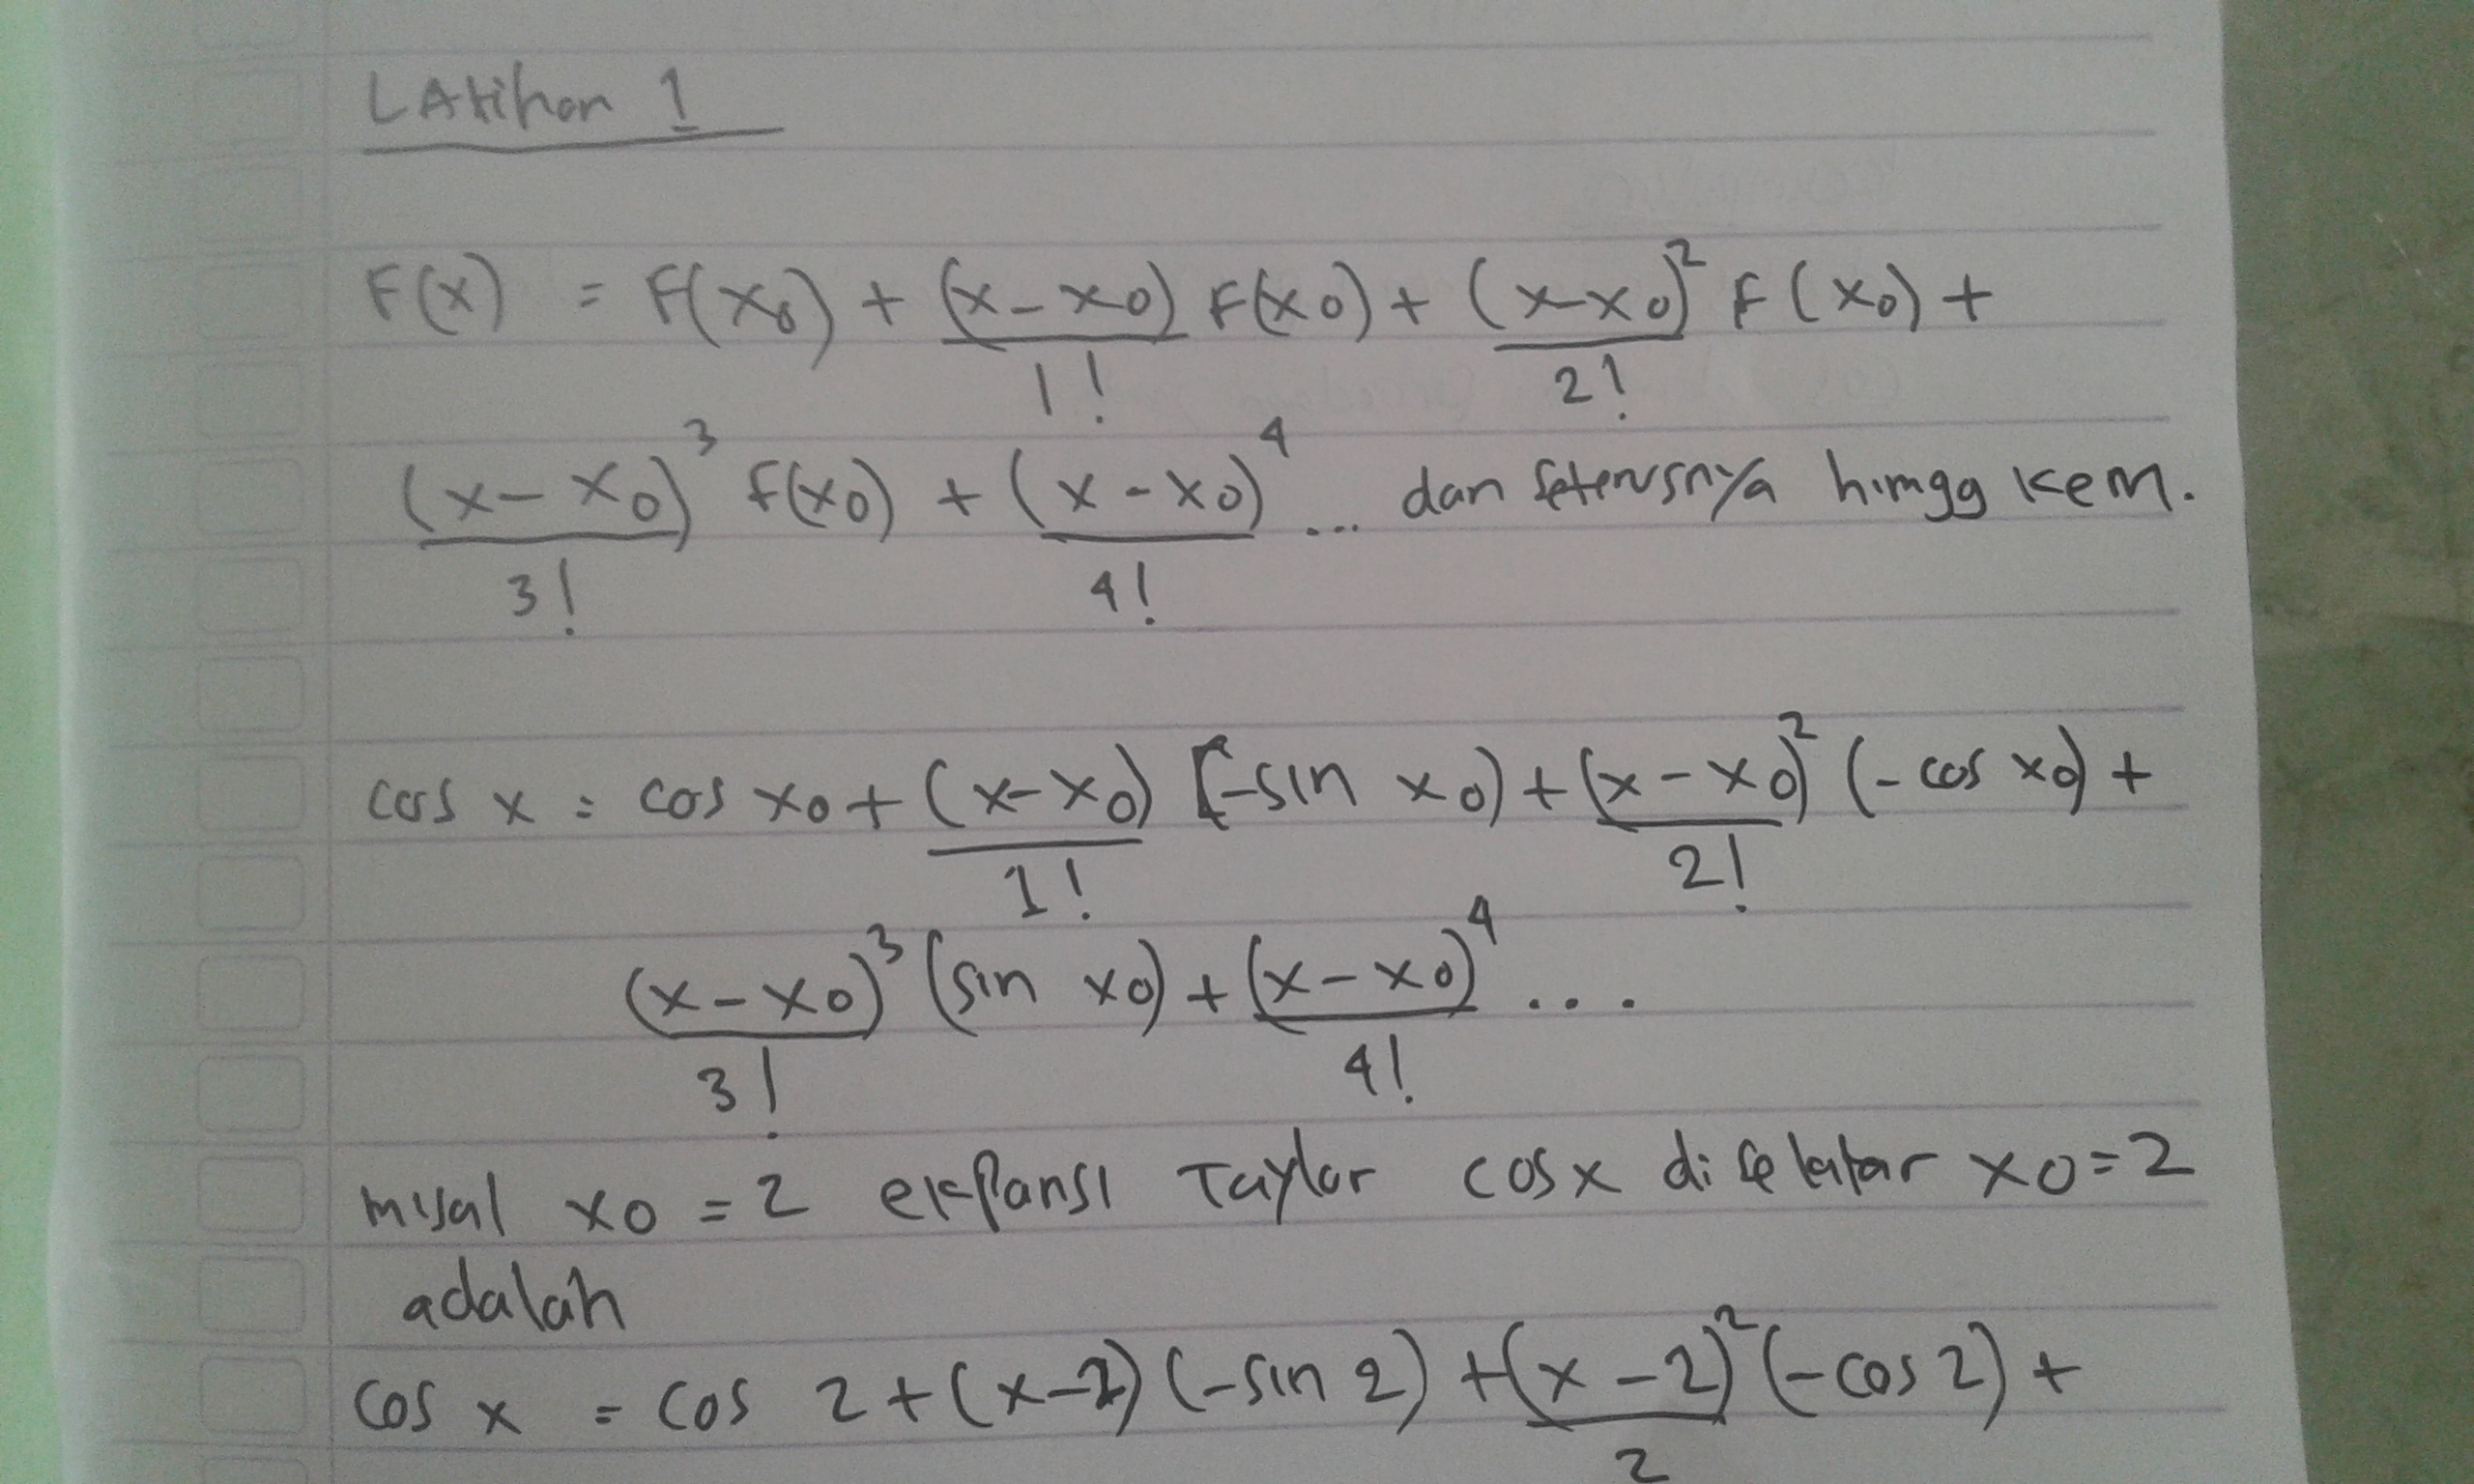 LAtihan 1
F(x) = F(x0) + (x-x0)/1! F(x0) + (x-x0)²/2! F(x0) +
(x-x0)³/3! f(x0) + (x-x0)⁴/4! ... dan seterusnya himgg kem.
cos x = cos x0 + (x-x0)/1! (-sin x0) + (x-x0)²/2! (-cos x0) +
(x-x0)³/3! (sin x0) + (x-x0)⁴/4! ....
misal x0 = 2 ekspansi Taylor cos x di sekitar x0=2
adalah
cos x = cos 2 + (x-2) (-sin 2) + (x-2)²/2 (-cos 2) +